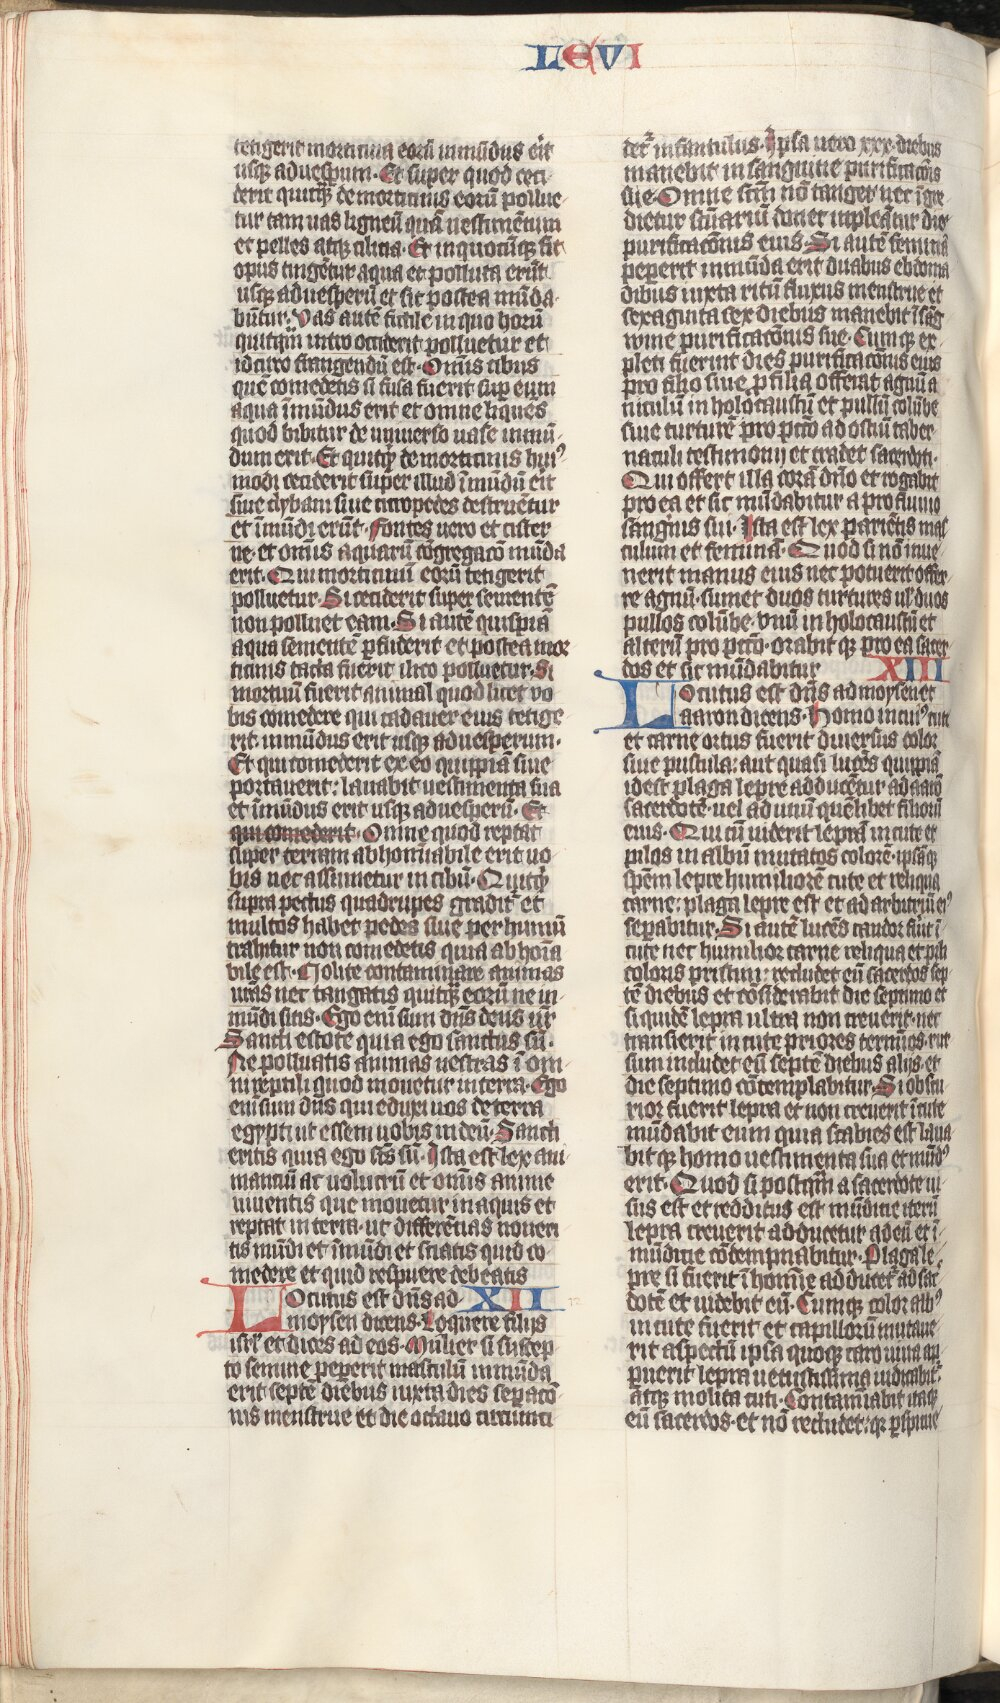 LEVI
tetigerit morticina eorū immūdus erit
usq; ad uesperum. Et super quod ceci-
derit quitq̄; de morticinis eorū pollue-
tur tam uas ligneū quā uestimentum
et pelles atq; cilicia. Et in quocūq; fit
opus tingētur aqua et polluta erūt
usq; ad uesperū et sic postea mūda-
būtur. Vas autē fictile in quo horū
quicq̄m intro ceciderit polluetur et
idcirco frangendū est. Omīs cibus
que comedetis si fusa fuerit sup eum
aqua īmūdus erit et omne liques
quod bibitur de uniuerso uase inmū-
dum erit. Et quitq̄ de morticinis hui⁹
modi ceciderit super illud īmūdū erit
siue clybani siue citropedes destruētur
et īmūdi erūt. Fontes uero et cister
ne. et omīs aquarū cōgregacō mūda
erit. Qui morticinū eorū tetigerit
polluetur. Si ceciderit super sementē
non polluet eam. Si autē quispiā
aqua sementē pfuderit et postea mor
ticinis tacta fuerit ilico polluetur. Si
mortuū fuerit animal quod licet vo
bis comedere qui cadauer eius tetige
rit. inmūdus erit usq; ad uesperum.
Et qui comederit ex eo quippiā siue
portauerit: lauabit uestimenta sua
et īmūdus erit usq; ad uesperū. Et
qui comederit. Omne quod reptat
super terram abhominabile erit uo-
bis nec assumetur in cibū. Quitq̄
supra pectus quadrupes gradit̄ et
multos habet pedes siue per humū
trahitur non comedetis quia abhoīa
bile est. Nolite contaminare animas
uras nec tangatis quitq̄; eorū ne in-
mūdi sitis. Ego enī sum dn̄s deus ur̄
Sancti estote quia ego sanctus sū.
Ne polluatis animas uestras ī om
ni reptili quod mouetur in terra. Ego
enī sum dn̄s qui eduxi uos de terra
egypti ut essem uobis in deū. Sancti
eritis quia ego sc̄s sū. Ista est lex ani
mantiū ac uolucrū et omīs anime
uiuentis que mouetur in aquis et
reptat in terra. ut differētias noueri
tis mūdi et īmūdi et sciatis quid co
medere et quid respuere debeatis
Locutus est dn̄s ad XII
moysen dicens. Loquere filijs
isrl̄ et dices ad eos. Mulier si suscep-
to semine pepererit masculū inmūda
erit septē diebus iuxta dies separacō-
nis menstrue et die octauo circunci
det̄ infantulus. Ipsa uero xxx. diebus
manebit in sanguine purificacōis
sue. Omne scm̄ nō tanget nec īgre-
dietur scuariū donec inpleātur dies
purificacōnis eius. Si autē feminā
pepererit inmūda erit duabus ebdoma
dibus iuxta ritū fluxus menstrue et
sexaginta sex diebus manebit ī sāg
wine purificacōnis sue. Cumq; ex-
pleti fuerint dies purificacōnis eius
pro filio siue p filia offerat agnū a
niculū in holocaustū et pullū colūbe
siue turturē pro pctō ad ostiū taber
naculi testimonij et tradet sacerdoti.
Qui offert illa corā dn̄o et rogabit
pro ea et sic mūdabitur a profluuio
sangnis sui. Ista est lex pariētis mas
culum et feminā. Quod si nō inue-
nerit manus eius nec potuerit offer-
re agnū. sumet duos turtures ul̄ duos
pullos colūbe. vnū in holocaustū et
alterū pro pctō. orabit q; pro ea sacer
dos et sic mūdabitur XIII
Locutus est dn̄s ad moysen et
aaron dicens. Homo in cui⁹ cute
et carne ortus fuerit diuersus color
siue pustula: aut quasi lucēs quippiā
idest plaga lepre adducētur ad aarō
sacerdotē. uel ad unū quēlibet filiorū
eius. Qui cū uiderit leprā in cute et
pilos in albū mutatos colorē. ipsāq;
spēm lepre humiliorē cute et reliqua
carne: plaga lepre est et ad arbitriū ei⁹
separabitur. Si autē lucēs candor fūit ī
cute nec humilior carne reliqua et pili
coloris pristini: recludet eū sacerdos sep-
tē diebus et cōsiderabit die septimo et
si quidē lepra ultra non creuerit. nec
transierit in cute priores termīos. rur
sum includet eū septē diebus alijs. et
die septimo cōtemplabitur. Si obscu
rior fuerit lepra et non creuerit ī cute
mūdabit eum quia scabies est laua
bit q; homo uestimenta sua et mūd⁹
erit. Quod si postq̄m a sacerdote ui
sus est et redditus est mūdicie iterū
lepra creuerit adducetur ad eū et ī-
mūdicie cōdempnabitur. Plaga le-
pre si fuerit ī homīe adducet̄ ad sac̄
dotē et uidebit eū. Cumq; color alb⁹
in cute fuerit et capillorū mutaue-
rit aspectū ipsa quoq; caro uiua ap
puerit lepra uetustissima iudicabit̄.
atq; molita cuti. Contamīabit itaq;
eū sacerdos. et nō recludet: q; pspicue